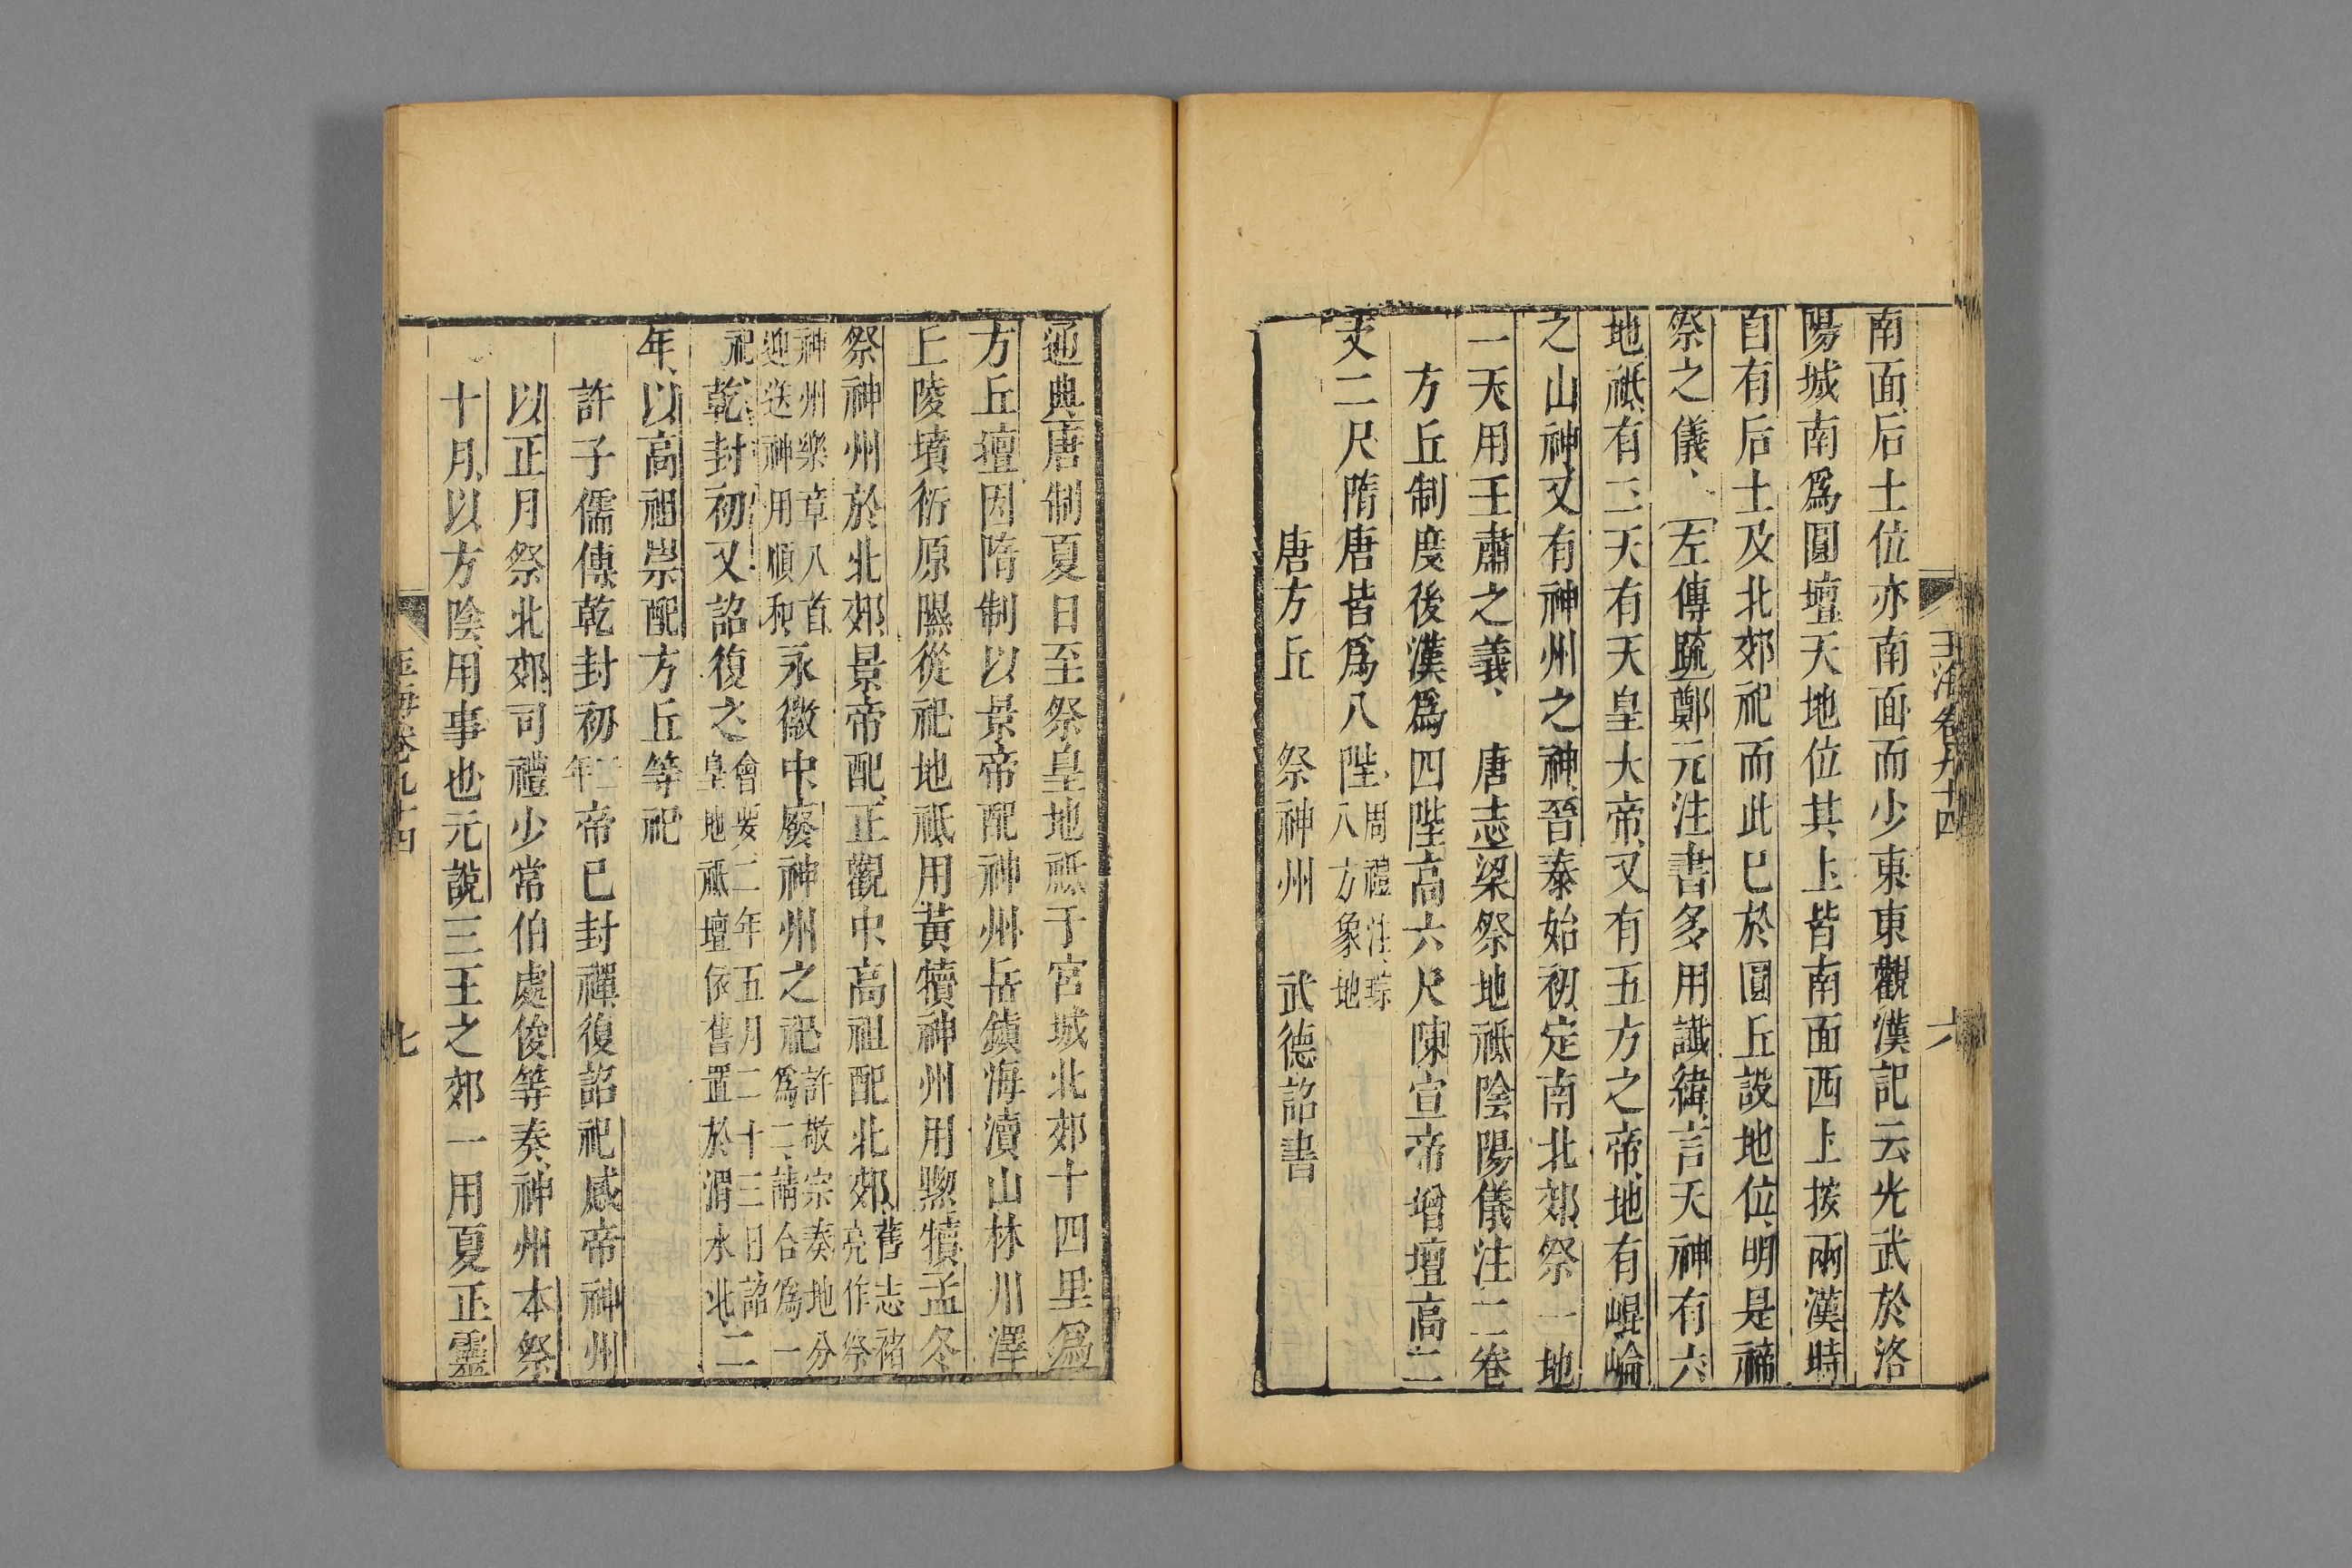 玉海卷九十四 六
南面后土位亦南面而少東東觀漢記云光武於洛
陽城南爲圓壇天地位其上皆南面西上按兩漢時
自有后土及北郊祀而此已於圓丘設地位明是禘
祭之儀 左傳疏鄭元注書多用讖緯言天神有六
地祗有二天有天皇大帝又有五方之帝地有崐崘
之山神又有神州之神晉泰始初定南北郊祭一地
一天用王肅之義 唐志梁祭地祗陰陽儀注二卷
方丘制度後漢爲四陛高六尺陳宣帝增壇高二
丈二尺隋唐皆爲八陛周禮注琮
八方象地
唐方丘 祭神州 武德詔書
通典唐制夏日至祭皇地祗于宮城北郊十四里爲
方丘壇因隋制以景帝配神州岳鎮海瀆山林川澤
丘陵墳衍原隰從祀地祗用黃犢神州用黝犢孟冬
祭神州於北郊景帝配正觀中高祖配北郊舊志褚
亮作祭
神州樂章八首
迎送神用順和永徽中廢神州之祀許敬宗奏地分
爲二請合爲一
祀乾封初又詔復之會要二年五月二十三日詔
皇地祗壇依舊置於渭水北二
年以高祖崇配方丘等祀
許子儒傳乾封初二
年帝已封禪復詔祀感帝神州
以正月祭北郊司禮少常伯處俊等奏神州本祭
十月以方陰用事也元說三王之郊一用夏正靈
玉海卷九十四 七